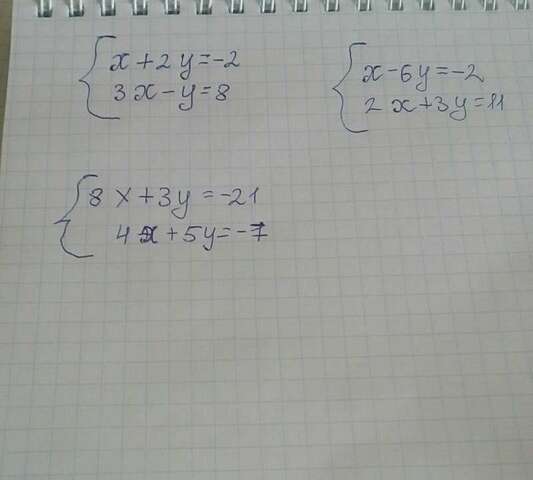 x+2y=-2
3x-y=8
x-6y=-2
2x+3y=11
8x+3y=-21
4x+5y=-7